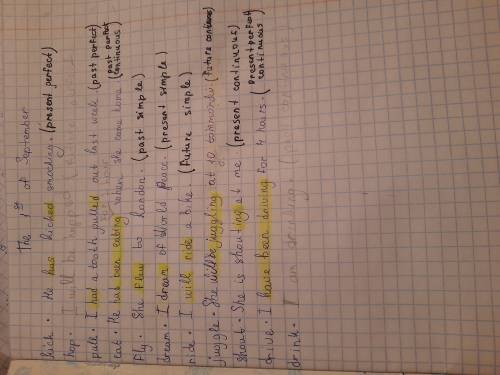 The 1st of September
kick • He has kicked smoking. (present perfect)
hop • I will be
pull • I had a tooth pulled out last week. (past perfect)
eat • He had been eating when she came home (past perfect continuous)
fly • She flew to London. (past simple)
dream • I dream of World peace. (present simple)
ride • I will ride a bike. (future simple)
juggle • She will be juggling at 10 tommorow. (future continuous)
shout • She is shouting at me (present continuous)
drive • I have been driving for 4 hours. (Present perfect continuous)
drink • I am drinking